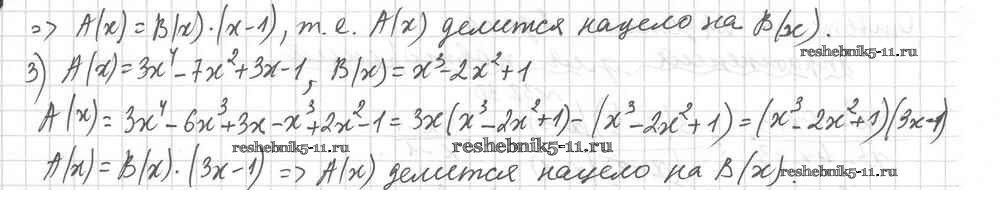 => A(x) = B(x)·(x-1), т.е. A(x) делится нацело на B(x).
reshebnik5-11.ru
3) A(x)=3x⁴-7x²+3x-1, B(x)=x³-2x²+1
A(x)=3x⁴-6x³+3x-x³+2x²-1=3x(x³-2x²+1)-(x³-2x²+1)=(x³-2x²+1)(3x-1)
reshebnik5-11.ru
reshebnik5-11.ru
A(x)=B(x)·(3x-1) => A(x) делится нацело на B(x).
reshebnik5-11.ru